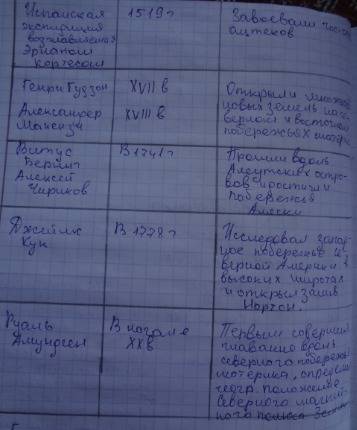 Испанская
экспедиция
возглавляемая
Эрнаном
Кортесом
1519г
Завоевали
ацтеков
Генри Гудзон
XVII в
Александр
Макензи
XVIII в
Открыли
новых земель на се
верном и восточном
побережьях
Витус
Беринг
Алексей
Чириков
В 1741г
Прошли вдоль
Алеутских остро
вов
побережья
Аляски
Джеймс
Кук
В 1778г
Исследовал запад
ное побережье
верной Америки в
высоких широтах
и открыл залив
Нортон.
Руаль
Амундсен
В начале
XXв
Первым совершил
плавание вдоль
северного побережья
материка, определ
геогр. положение
северного магнит
ного полюса